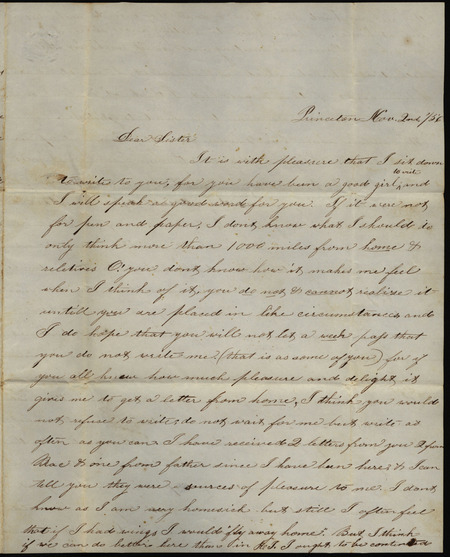 Princeton Nov. 2nd /56
Dear Sister
It is with pleasure that I sit down
to write to you, for you have been a good girl, to write and
I will speak a good word for you. If it were not
for pen and paper, I dont know what I should do
only think more than 1000 miles from home &
relatives O! you dont know how it makes me feel
when I think of it, you do not, & cannot realize it
untill you are placed in like circumstances and
I do hope that you will not let a week pass that
you do not write me (that is as some of you) for if
you all knew how much pleasure and delight, it
gives me to get a letter from home, I think you would
not refuse to write; do not wait for me but write as
often as you can. I have received 2 letters from you 2 from
Mac & one from father since I have been here & I can
tell you they were sources of pleasure to me. I dont
know as I am very homesick but still I often feel
that if I had wings I would "fly away home". But I think
if we can do better here than in I ought to be contented